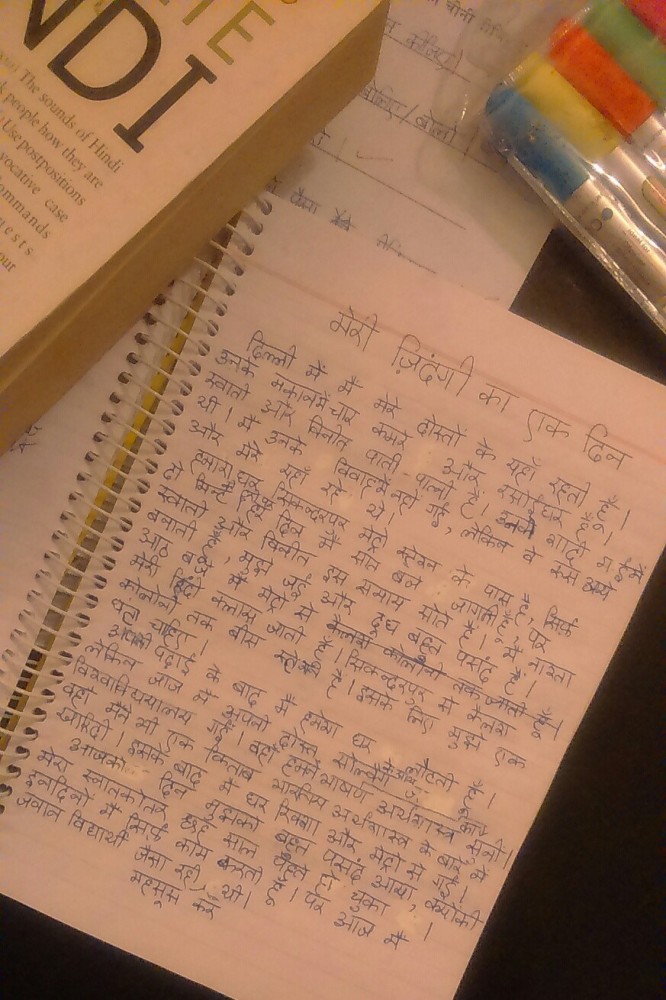 NDI
The sounds of Hindi
people how they are
Use postpositions
vocative case
commands
मेरी ज़िंदगी का एक दिन
दिल्ली में मैं मेरे दोस्तों के यहाँ रहती हूँ।
उनके मकान में चार कमरे और रसोईघर हैं।
स्वाती और विनीत पति पत्नी हैं। उनकी शादी मई में
थी। मैं उनके विवाह में नहीं गई, लेकिन वे रूस आये
और मेरे यहाँ रहे थे।
हमारा घर सिकन्दरपुर मेट्रो स्टेशन के पास है, सिर्फ
दो मिनट। हर दिन मैं सात बजे जागती हूँ, पर
स्वाती और विनीत इस समय सोते हैं। मैं नाश्ता
बनाती हूँ, मुझे जई और दूध बहुत पसंद हैं।
आठ बजे मैं मेट्रो से कैलाश कॉलोनी तक जाती हूँ।
मेरी हिंदी क्लास जाती हूँ। सिकन्दरपुर से कैलाश
कॉलोनी तक बीस स्टेशन हैं। इसके लिए मुझे एक
घंटा चाहिए।
अपनी पढ़ाई के बाद मैं हमेशा घर लौटती हूँ।
लेकिन आज मैं अपनी दोस्त
विश्वविद्यालय गई। वहाँ हमने भाषण अर्थशास्त्र सुनी।
वहाँ मैंने भी एक किताब भारतीय अर्थशास्त्र के बारे में
खरीदी। इसके बाद मैं घर रिक्शा और मेट्रो से गई।
आजका दिन मुझको बहुत पसंद आया, क्योंकी
मेरा स्नातकोतर छह साल पहले हो चुका।
इनदिनों मैं सिर्फ काम करती हूँ। पर आज मैं
जवान विद्यार्थी जैसा रही थी।
महसूस कर